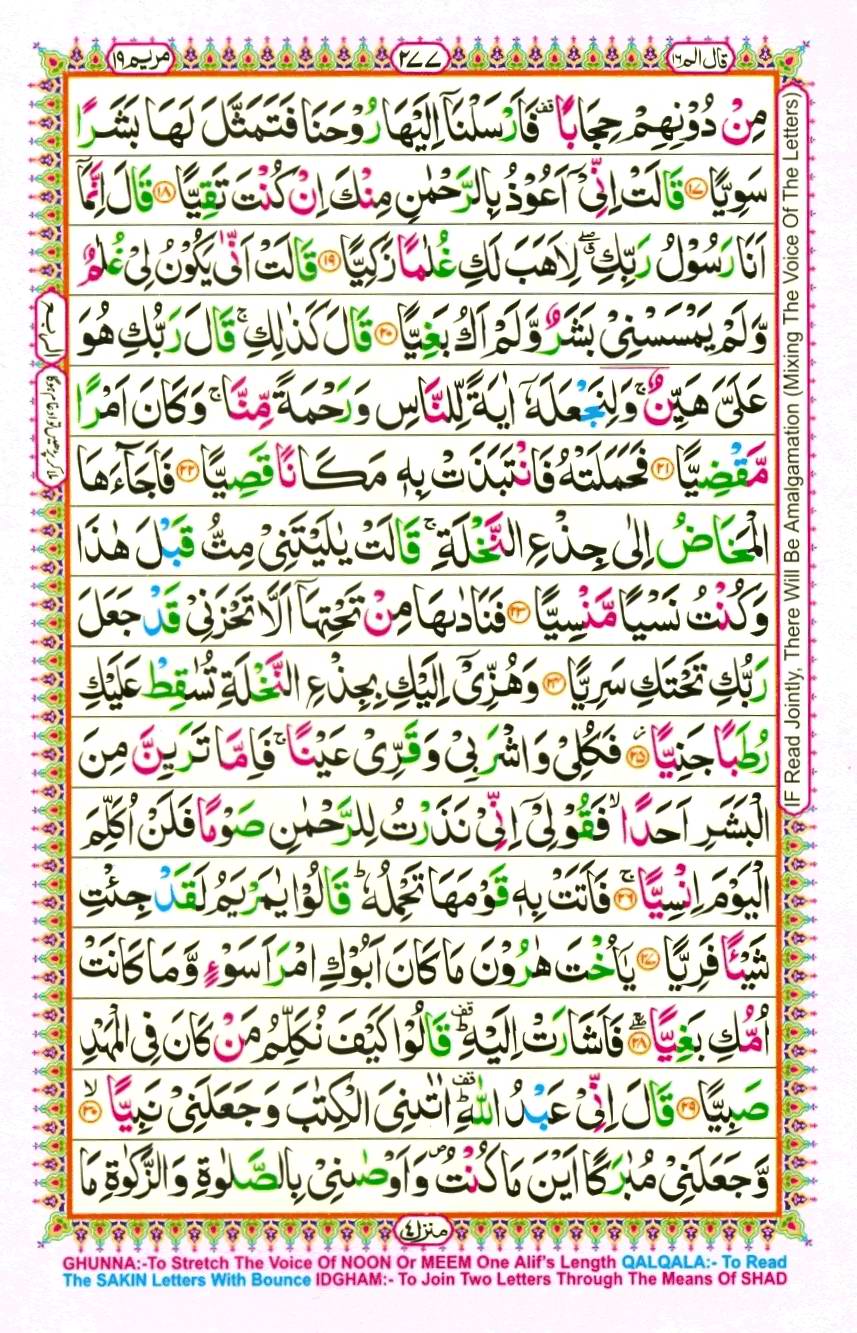 مریم ۱۹
۲۷۷
قال الم ۱۶
مِنْ دُوْنِهِمْ حِجَابًا ۪ۛ فَاَرْسَلْنَاۤ اِلَیْهَا رُوْحَنَا فَتَمَثَّلَ لَهَا بَشَرًا
سَوِیًّا ۱۷ قَالَتْ اِنِّیْۤ اَعُوْذُ بِالرَّحْمٰنِ مِنْكَ اِنْ كُنْتَ تَقِیًّا ۱۸ قَالَ اِنَّمَاۤ
اَنَا رَسُوْلُ رَبِّكِ ۖۗ لِاَهَبَ لَكِ غُلٰمًا زَكِیًّا ۱۹ قَالَتْ اَنّٰی یَكُوْنُ لِیْ غُلٰمٌ
وَّلَمْ یَمْسَسْنِیْ بَشَرٌ وَّلَمْ اَكُ بَغِیًّا ۲۰ قَالَ كَذٰلِكِ ۚ قَالَ رَبُّكِ هُوَ
عَلَیَّ هَیِّنٌ ۚ وَلِنَجْعَلَهٗۤ اٰیَةً لِّلنَّاسِ وَرَحْمَةً مِّنَّا ۚ وَكَانَ اَمْرًا
مَّقْضِیًّا ۲۱ فَحَمَلَتْهُ فَانْتَبَذَتْ بِهٖ مَكَانًا قَصِیًّا ۲۲ فَاَجَآءَهَا
الْمَخَاضُ اِلٰی جِذْعِ النَّخْلَةِ ۚ قَالَتْ یٰلَیْتَنِیْ مِتُّ قَبْلَ هٰذَا
وَكُنْتُ نَسْیًا مَّنْسِیًّا ۲۳ فَنَادٰىهَا مِنْ تَحْتِهَاۤ اَلَّا تَحْزَنِیْ قَدْ جَعَلَ
رَبُّكِ تَحْتَكِ سَرِیًّا ۲۴ وَهُزِّیْۤ اِلَیْكِ بِجِذْعِ النَّخْلَةِ تُسٰقِطْ عَلَیْكِ
رُطَبًا جَنِیًّا ۲۵ فَكُلِیْ وَاشْرَبِیْ وَقَرِّیْ عَیْنًا ۚ فَاِمَّا تَرَیِنَّ مِنَ
الْبَشَرِ اَحَدًا ۙ فَقُوْلِیْۤ اِنِّیْ نَذَرْتُ لِلرَّحْمٰنِ صَوْمًا فَلَنْ اُكَلِّمَ
الْیَوْمَ اِنْسِیًّا ۚ ۲۶ فَاَتَتْ بِهٖ قَوْمَهَا تَحْمِلُهٗ ؕ قَالُوْا یٰمَرْیَمُ لَقَدْ جِئْتِ
شَیْـًٔا فَرِیًّا ۲۷ یٰۤاُخْتَ هٰرُوْنَ مَا كَانَ اَبُوْكِ امْرَاَ سَوْءٍ وَّمَا كَانَتْ
اُمُّكِ بَغِیًّا ۲۸ فَاَشَارَتْ اِلَیْهِ ؕ قف قَالُوْا كَیْفَ نُكَلِّمُ مَنْ كَانَ فِی الْمَهْدِ
صَبِیًّا ۲۹ قَالَ اِنِّیْ عَبْدُ اللّٰهِ ؕ قف اٰتٰىنِیَ الْكِتٰبَ وَجَعَلَنِیْ نَبِیًّا ۙ ۳۰
وَّجَعَلَنِیْ مُبٰرَكًا اَیْنَ مَا كُنْتُ ۪ وَاَوْصٰىنِیْ بِالصَّلٰوةِ وَالزَّكٰوةِ مَا
منزل ٤
IF Read Jointly, There Will Be Amalgamation (Mixing The Voice Of The Letters)
GHUNNA:-To Stretch The Voice Of NOON Or MEEM One Alif's Length QALQALA:- To Read
The SAKIN Letters With Bounce IDGHAM:- To Join Two Letters Through The Means Of SHAD